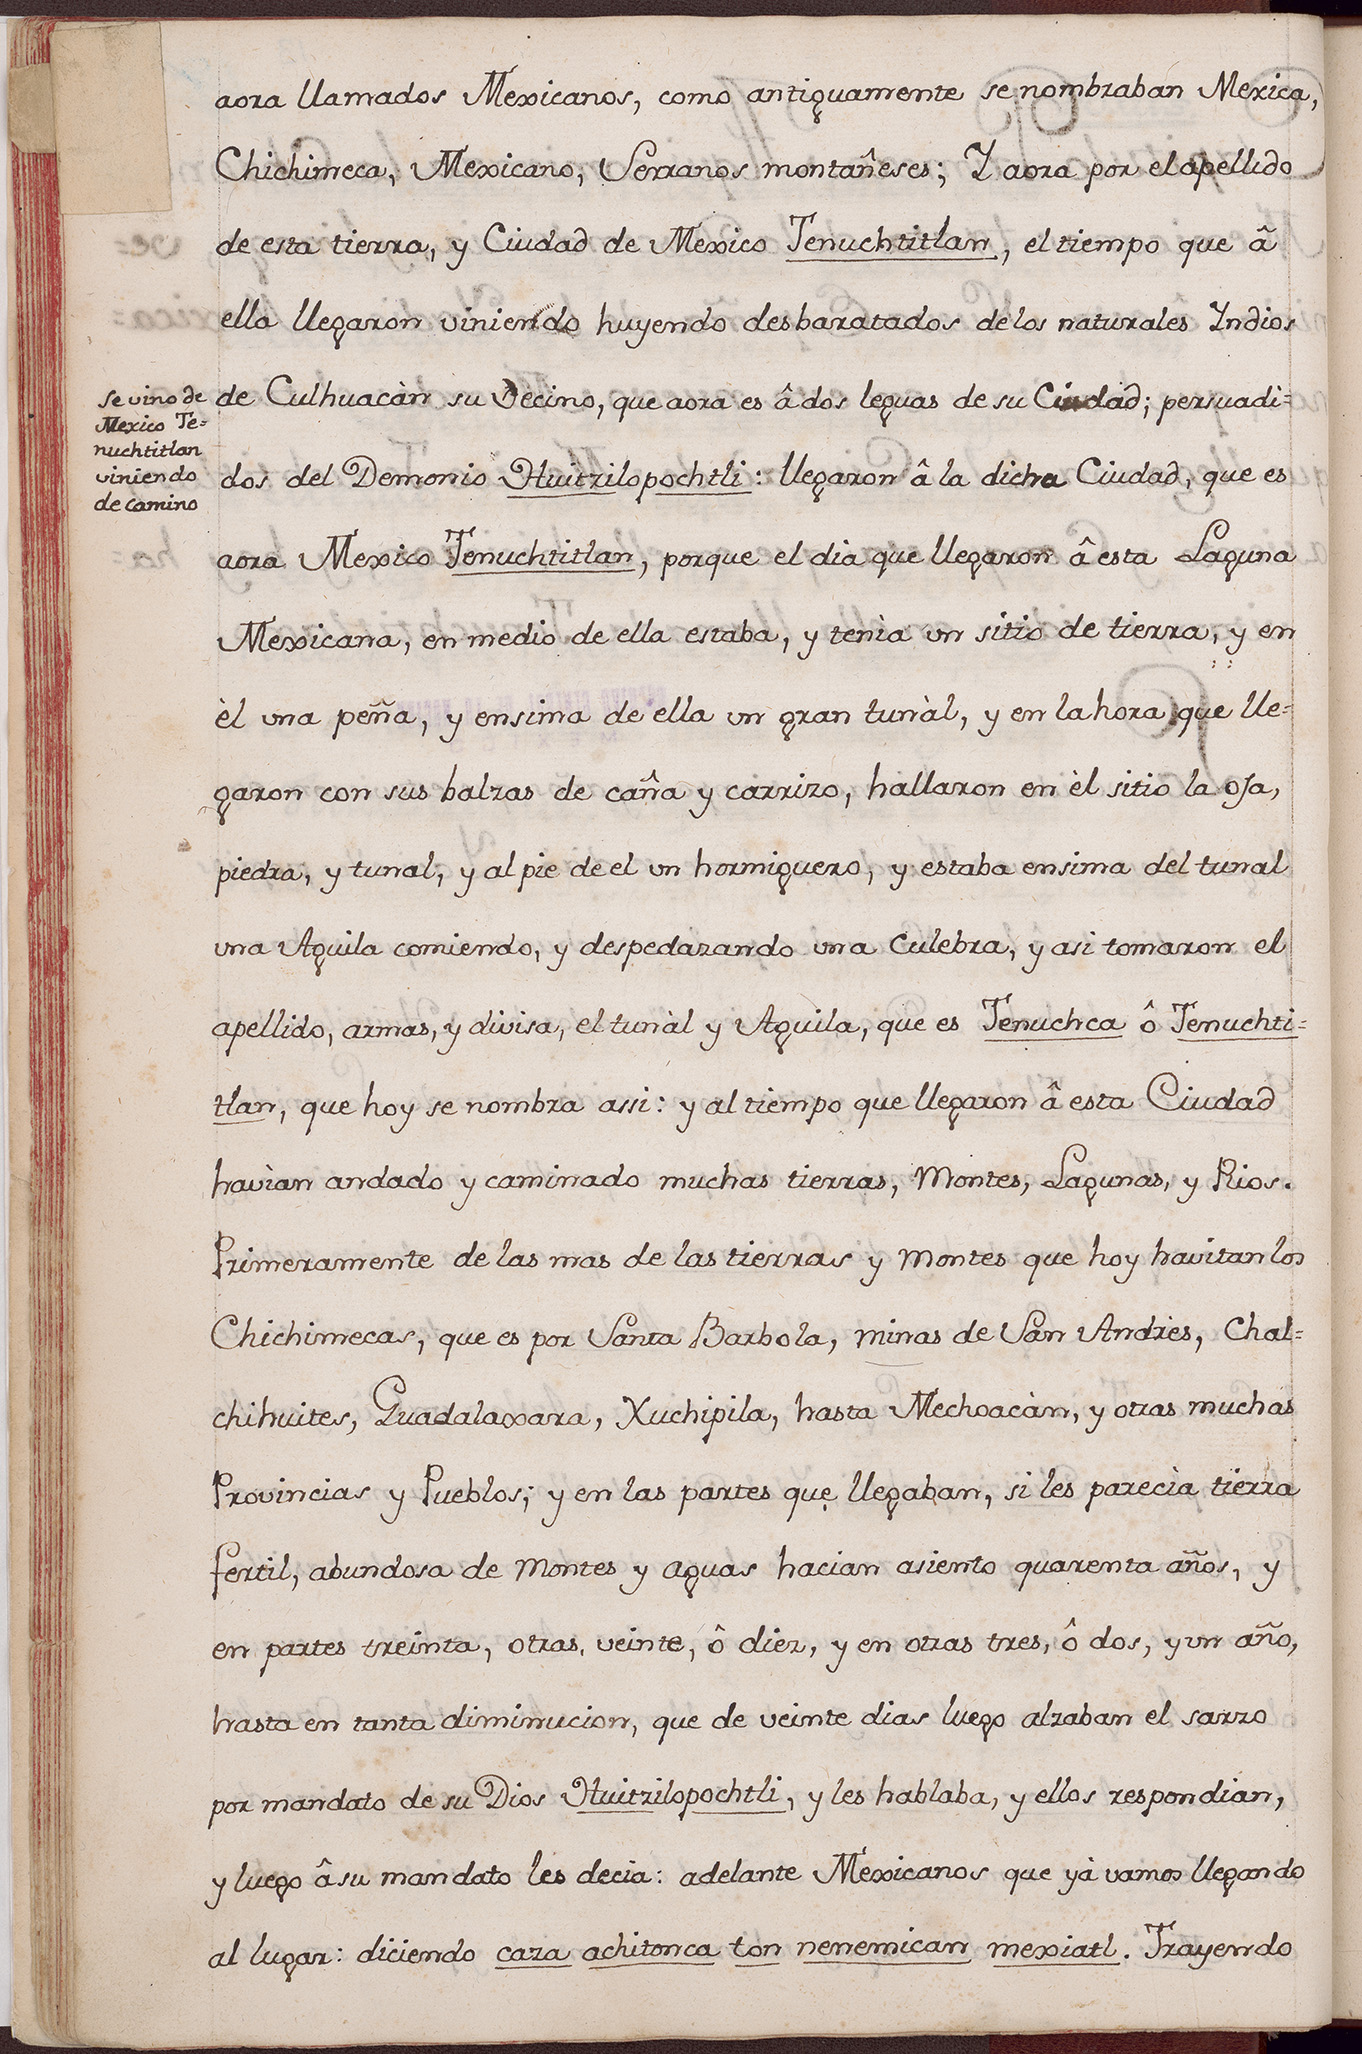 aora llamados Mexicanos, como antiguamente se nombraban Mexica,
Chichimeca, Mexicano, Serranos montañeses; Y aora por el apellido
de esta tierra, y Ciudad de Mexico Tenuchtitlan, el tiempo que â
ella llegaron viniendo huyendo desbaratados de los naturales Yndios
se vino de
Mexico Te=
nuchtitlan
viniendo
de camino
de Culhuacàn su Vecino, que aora es â dos leguas de su Ciudad; persuadi=
dos del Demonio Huitzilopochtli: llegaron â la dicha Ciudad, que es
aora Mexico Tenuchtitlan, porque el dia que llegaron â esta Laguna
Mexicana, en medio de ella estaba, y tenìa un sitio de tierra, y en
èl una peña, y ensima de ella un gran tunàl, y en la hora que lle=
garon con sus balzas de caña y carrizo, hallaron en èl sitio la oja,
piedra, y tunal, y al pie de el un hormiguero, y estaba ensima del tunal
una Aguila comiendo, y despedazando una culebra, y asi tomaron el
apellido, armas, y divisa, el tunàl y Aguila, que es Tenuchca ô Tenuchti=
tlan, que hoy se nombra assi: y al tiempo que llegaron â esta Ciudad
havìan andado y caminado muchas tierras, Montes, Lagunas, y Rios.
Primeramente de las mas de las tierras y Montes que hoy havitan los
Chichimecas, que es por Santa Barbola, minas de San Andrès, Chal=
chihuites, Guadalaxara, Xuchipila, hasta Mechoacàn, y otras muchas
Provincias y Pueblos; y en las partes que llegaban, si les parecìa tierra
fertil, abundosa de Montes y aguas hacian asiento quarenta años, y
en partes treinta, otras, veinte, ô diez, y en otras tres, ô dos, y un año,
hasta en tanta diminucion, que de veinte dias luego alzaban el sarzo
por mandato de su Dios Huitzilopochtli, y les hablaba, y ellos respondian,
y luego â su mandato les decia: adelante Mexicanos que yà vamos llegando
al lugar: diciendo caza achitonca ton nenemican mexiatl. Trayendo